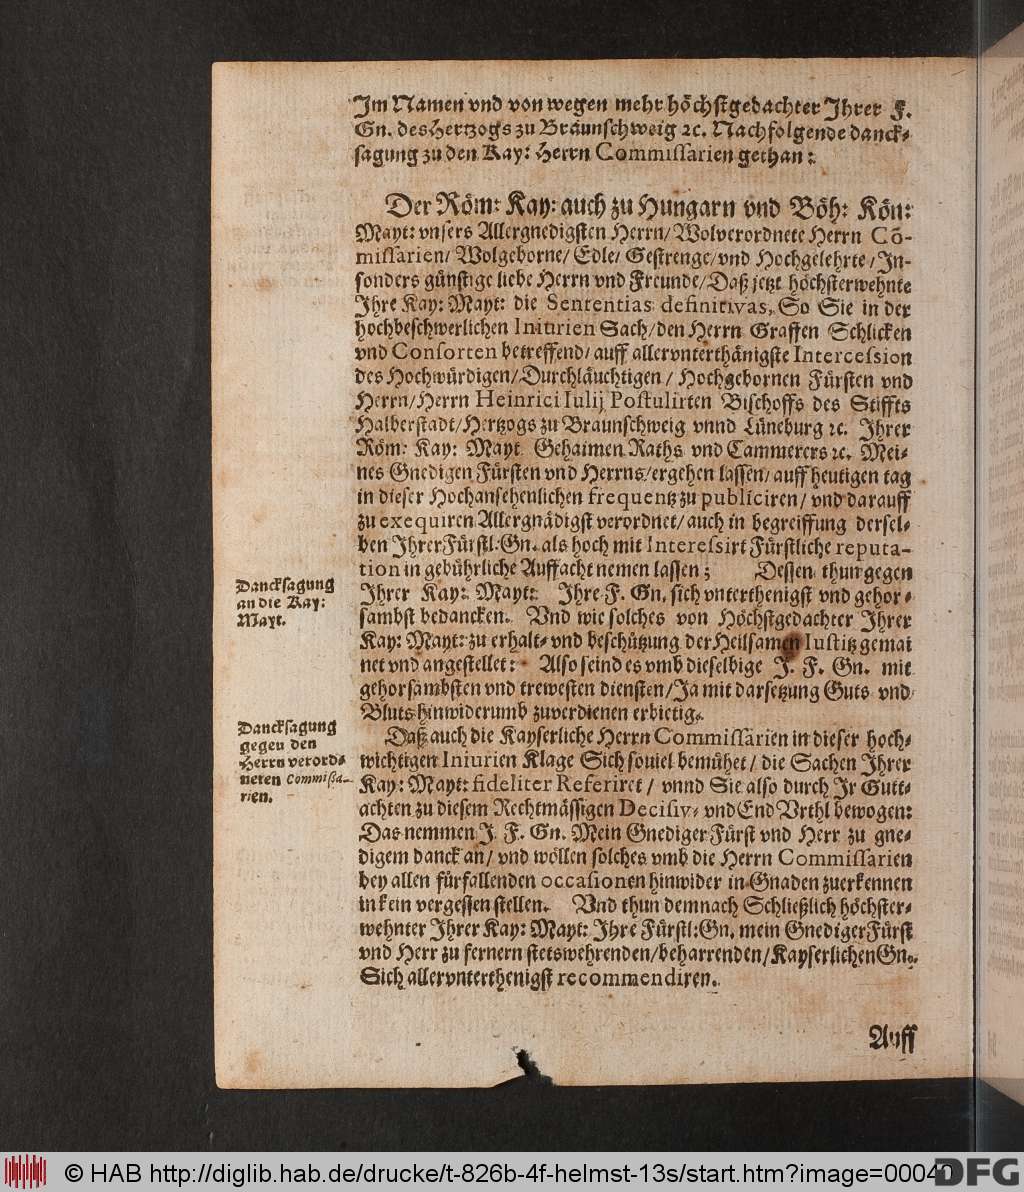 Im Namen vnd von wegen mehr höchstgedachter Ihrer F.
Gn. des Hertzogs zu Braunschweig ꝛc. Nachfolgende danck-
sagung zu den Kay: Herrn Commissarien gethan:
Der Röm: Kay: auch zu Hungarn vnd Böh: Kön:
Mayt: vnsers Allergnedigsten Herrn/ Wolverordnete Herrn Cõ-
missarien/ Wolgeborne/ Edle/ Gestrenge/ vnd Hochgelehrte/ In-
sonders günstige liebe Herrn vnd Freunde/ Daß jetzt höchsterwehnte
Ihre Kay: Mayt: die Sententias definitivas, So Sie in der
hochbeschwerlichen Iniurien Sach/ den Herrn Graffen Schlicken
vnd Consorten betreffend/ auff allervnterthänigste Intercession
des Hochwürdigen/ Durchläuchtigen/ Hochgebornen Fürsten vnd
Herrn/ Herrn Heinrici Iulij Postulirten Bischoffs des Stiffts
Halberstadt/ Hertzogs zu Braunschweig vnnd Lüneburg ꝛc. Ihrer
Röm: Kay: Mayt. Gehaimen Raths vnd Cammerers ꝛc. Mei-
nes Gnedigen Fürsten vnd Herrns/ ergehen lassen/ auff heutigen tag
in dieser Hochansehenlichen frequentz zu publiciren/ vnd darauff
zu exequiren Allergnädigst verordnet/ auch in begreiffung dersel-
ben Ihrer Fürstl: Gn. als hoch mit Interessirt Fürstliche reputa-
tion in gebührliche Auffacht nemen lassen; Dessen thun gegen
Dancksagung
an die Kay:
Mayt.
Ihrer Kay: Mayt: Ihre F. Gn. sich vnterthenigst vnd gehor-
sambst bedancken. Vnd wie solches von Höchstgedachter Ihrer
Kay: Mayt: zu erhalt- vnd beschützung der Heilsamen Iustitz gemai
net vnd angestellet: Also seind es vmb dieselbige J. F. Gn. mit
gehorsambsten vnd trewesten diensten/ Ja mit darsetzung Guts vnd
Bluts hinwiderumb zuverdienen erbietig.
Dancksagung
gegeu den
Herrn verord-
neten Commißa-
rien.
Daß auch die Kayserliche Herrn Commissarien in dieser hoch-
wichtigen Iniurien Klage Sich souiel bemühet/ die Sachen Ihrer
Kay: Mayt: fideliter Referiret/ vnnd Sie also durch Ir Gutt-
achten zu diesem Rechtmässigen Decisiv- vnd End Vrthl bewogen:
Das nemmen J. F. Gn. Mein Gnediger Fürst vnd Herr zu gne-
digem danck an/ vnd wöllen solches vmb die Herrn Commissarien
bey allen fürfallenden occasionen hinwider in Gnaden zuerkennen
in kein vergessen stellen. Vnd thun demnach Schließlich höchster-
wehnter Ihrer Kay: Mayt: Ihre Fürstl: Gn. mein Gnediger Fürst
vnd Herr zu fernern stetswehrenden/ beharrenden/ Kayserlichen Gn.
Sich allervnterthenigst recommendiren.
Auff
© HAB http://diglib.hab.de/drucke/t-826b-4f-helmst-13s/start.htm?image=00040
DFG